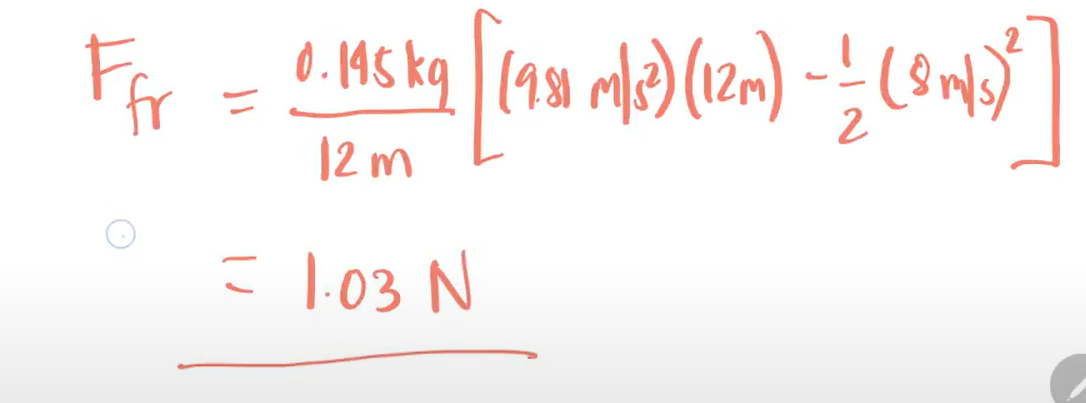 F_fr = 0.145 kg / 12 m [(9.81 m/s²)(12m) - 1/2 (8 m/s)²]
= 1.03 N